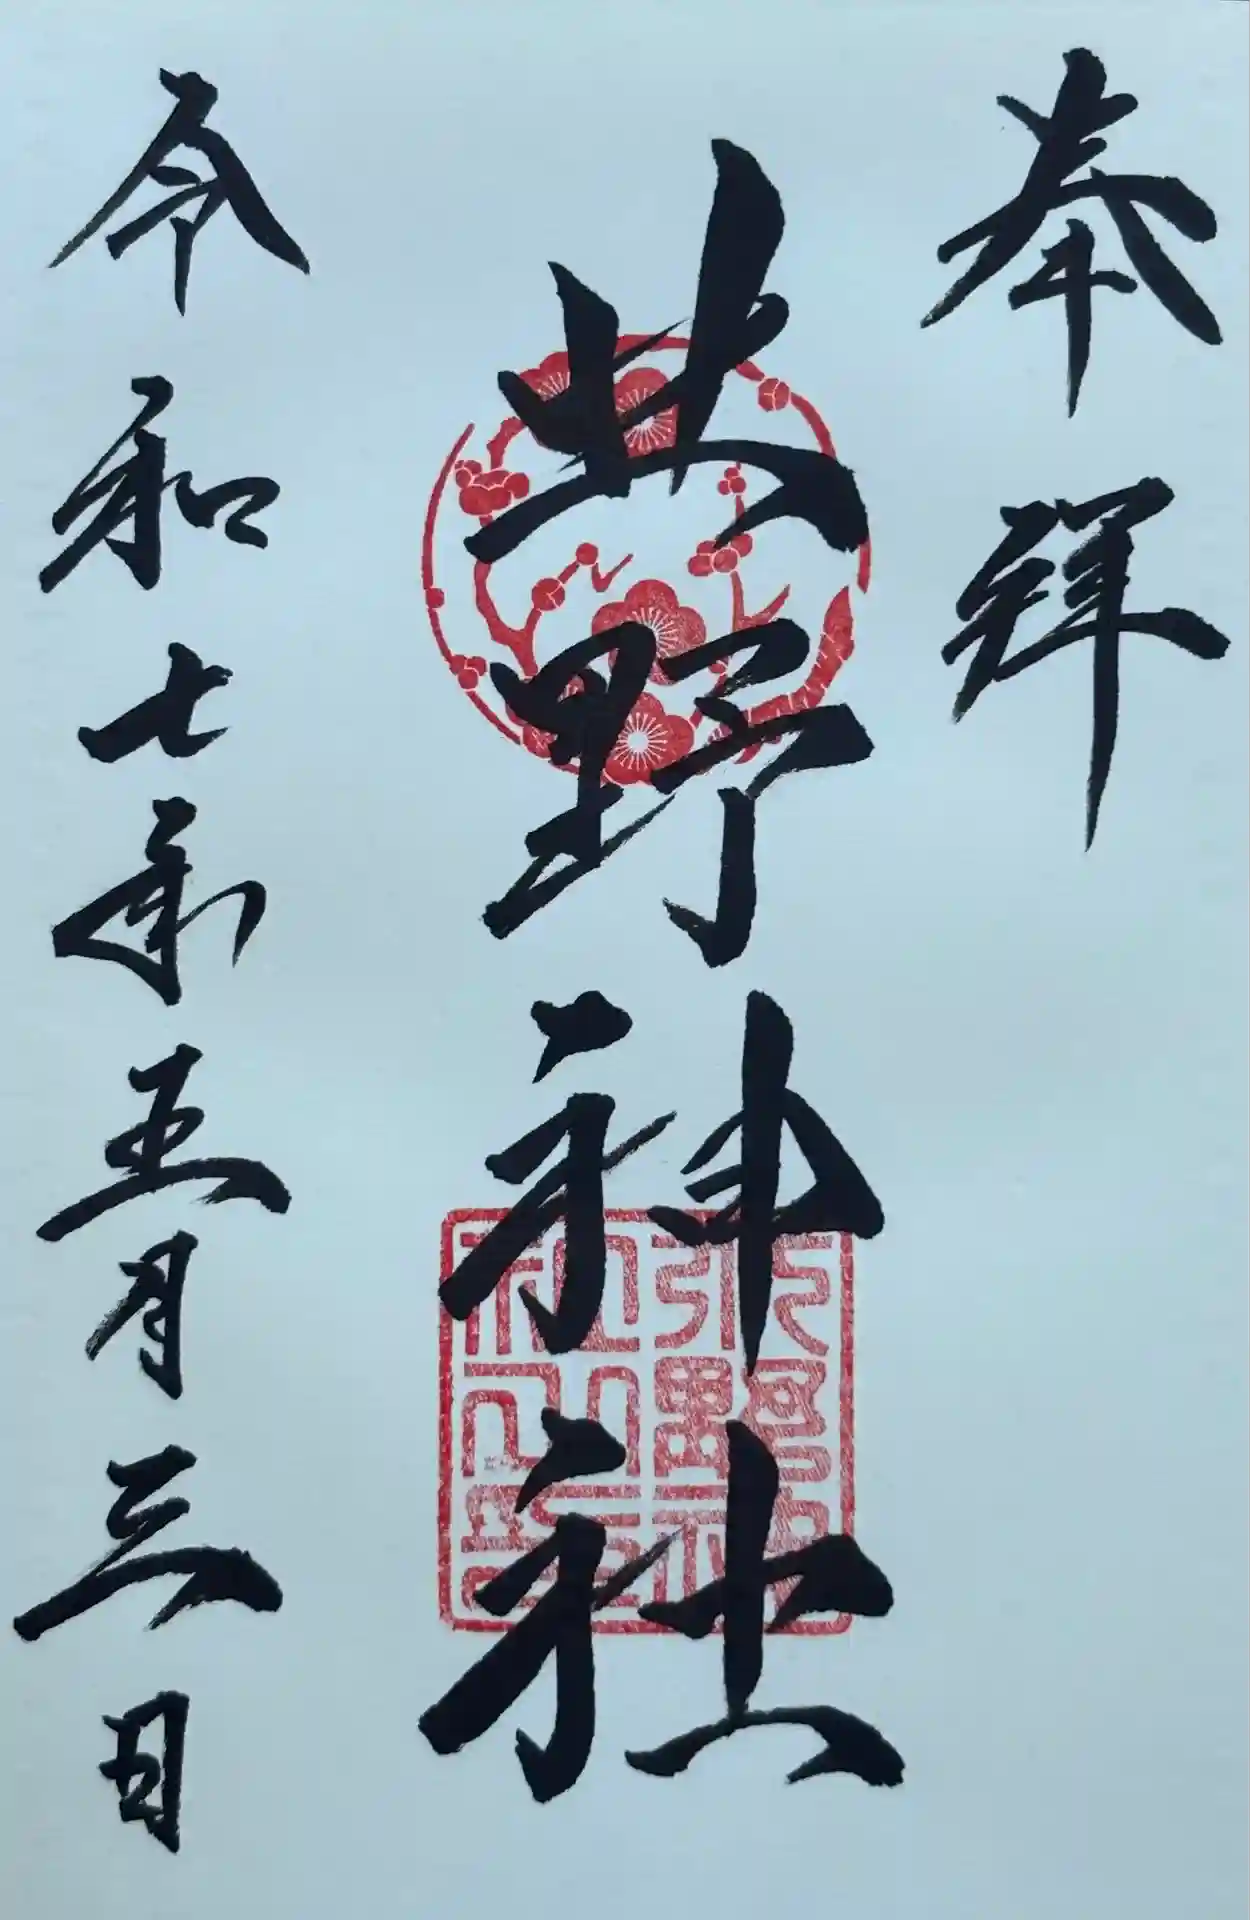 奉拝
北野神社
令和七年五月三日